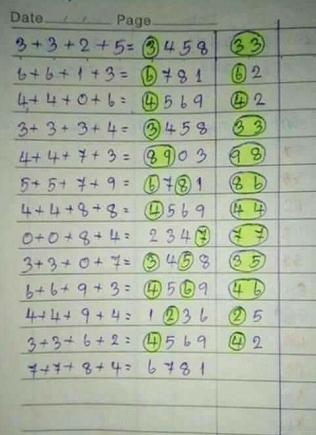 Date / / Page
3+3+2+5= 3458 33
6+6+1+3= 6781 62
4+4+0+6= 4569 42
3+3+3+4= 3458 33
4+4+7+3= 8903 98
5+5+7+9= 6781 86
4+4+8+8= 4569 44
0+0+8+4= 2347 77
3+3+0+7= 3458 35
6+6+9+3= 4569 46
4+4+9+4= 1236 25
3+3+6+2= 4569 42
7+7+8+4= 6781